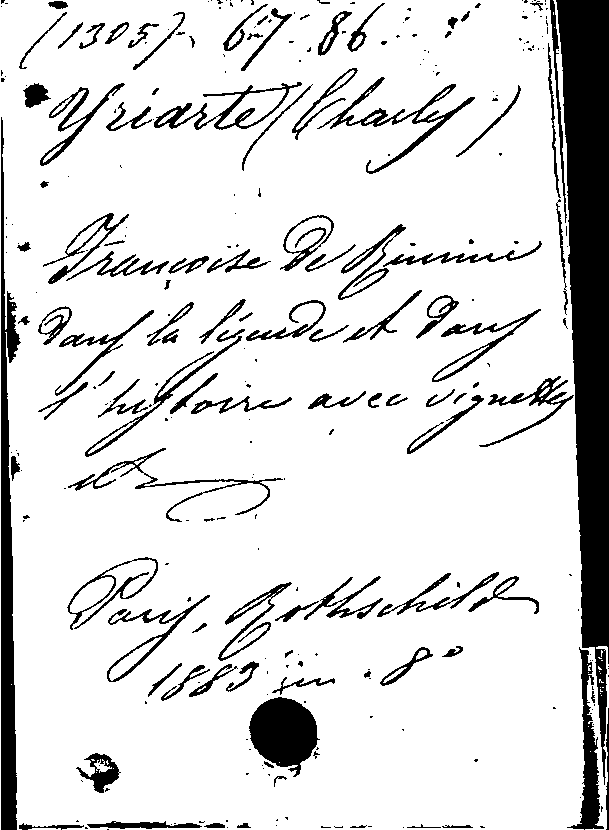 (1305) 67. 86.
Yriarte (Charles)
Françoise de Rimini
dans la légende et dans
l'histoire avec vignettes
etc
Paris, Rothschild
1883 in 8°